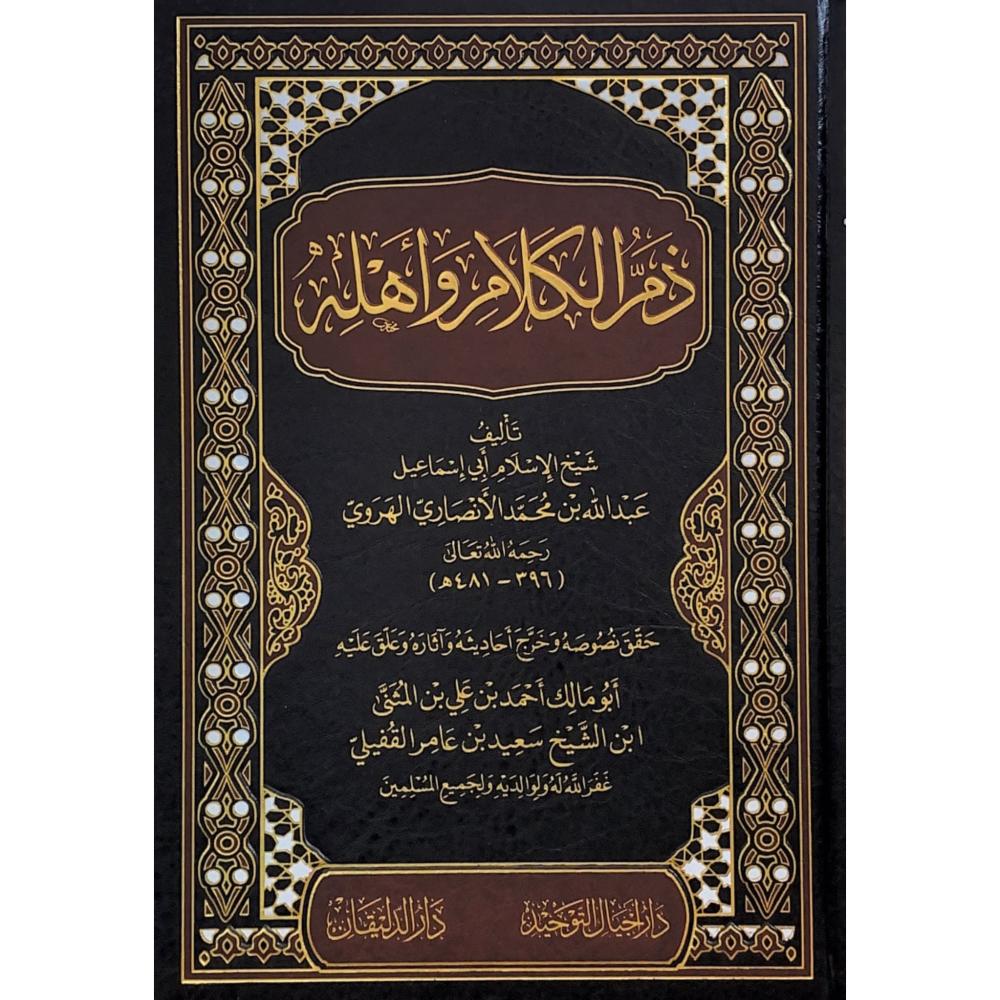 ذَمُّ الكَلَامِ وَأَهْلِهِ
تَأْلِيفُ
شَيْخِ الإِسْلَامِ أَبِي إِسْمَاعِيل
عَبْدِ اللهِ بْنِ مُحَمَّدٍ الأَنْصَارِيِّ الهَرَوِيِّ
رَحِمَهُ اللهُ تَعَالَى
(٣٩٦ - ٤٨١هـ)
حَقَّقَ نُصُوصَهُ وَخَرَّجَ أَحَادِيثَهُ وَآثَارَهُ وَعَلَّقَ عَلَيْهِ
أَبُو مَالِك أَحْمَد بْن عَلِي بْن المُثَنَّى
ابْن الشَّيْخ سَعِيد بْن عَامِر القُفَيْلِيّ
غَفَرَ اللَّهُ لَهُ وَلِوَالِدَيْهِ وَلِجَمِيعِ المُسْلِمِينَ
دَارُ أَجْيَالِ التَّوْحِيدِ
دَارُ الدَّلِيقَان